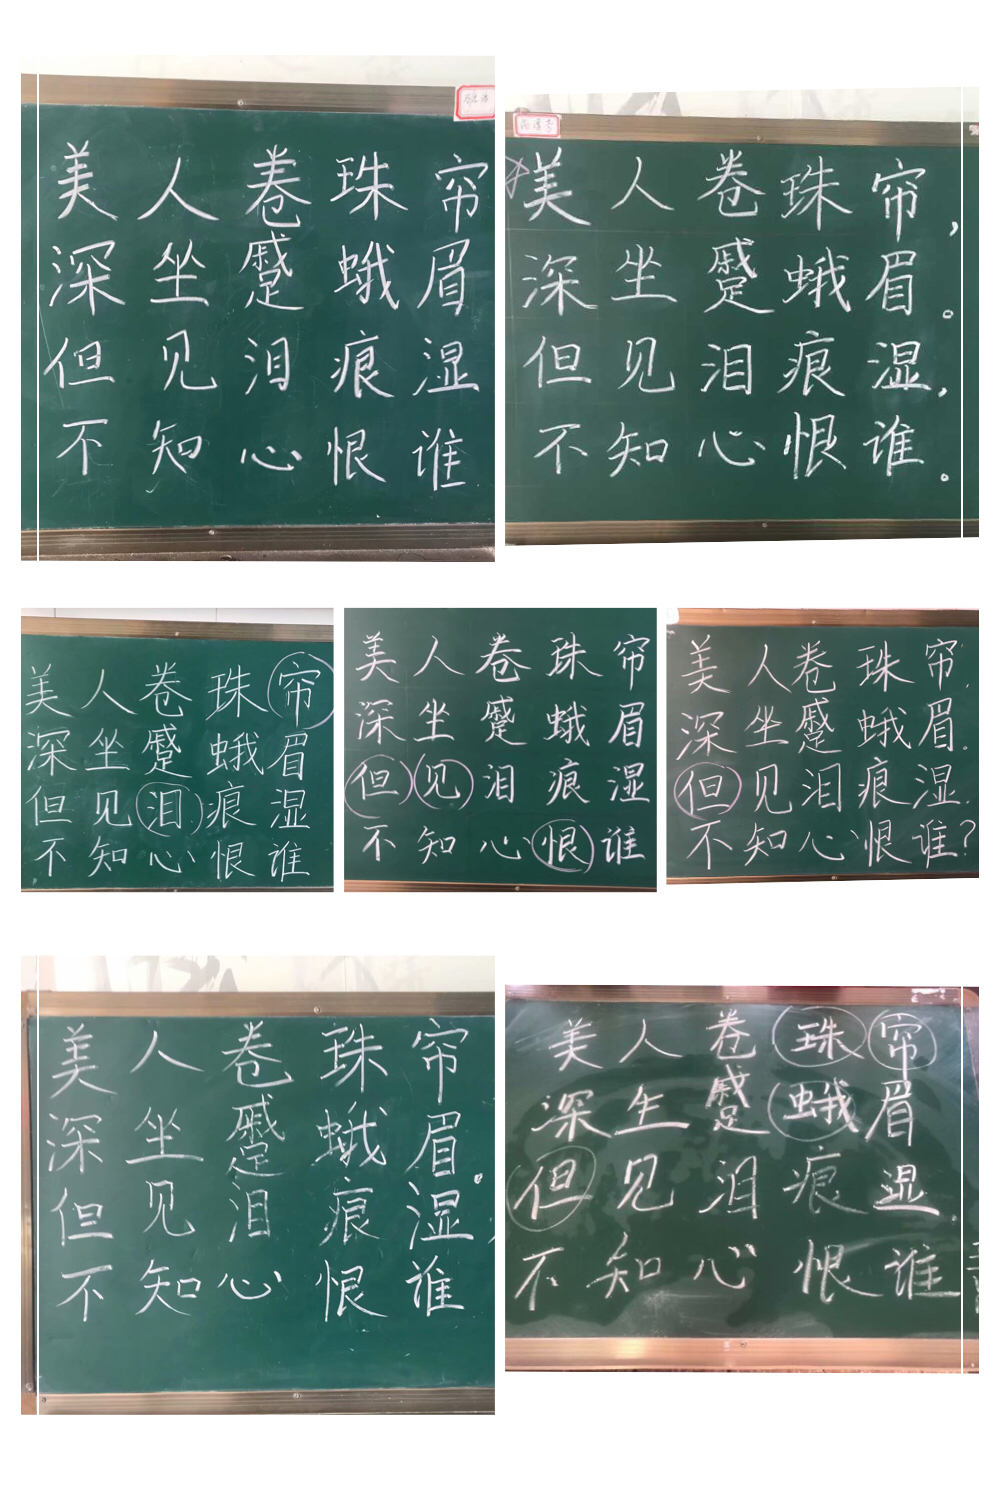 美人卷珠帘
深坐蹙蛾眉
但见泪痕湿
不知心恨谁
美人卷珠帘，
深坐蹙蛾眉。
但见泪痕湿，
不知心恨谁。
美人卷珠帘
深坐蹙蛾眉
但见泪痕湿
不知心恨谁
美人卷珠帘
深坐蹙蛾眉
但见泪痕湿
不知心恨谁
美人卷珠帘，
深坐蹙蛾眉。
但见泪痕湿，
不知心恨谁？
美人卷珠帘
深坐蹙蛾眉。
但见泪痕湿，
不知心恨谁
美人卷珠帘
深生蹙蛾眉
但见泪痕湿.
不知心恨谁